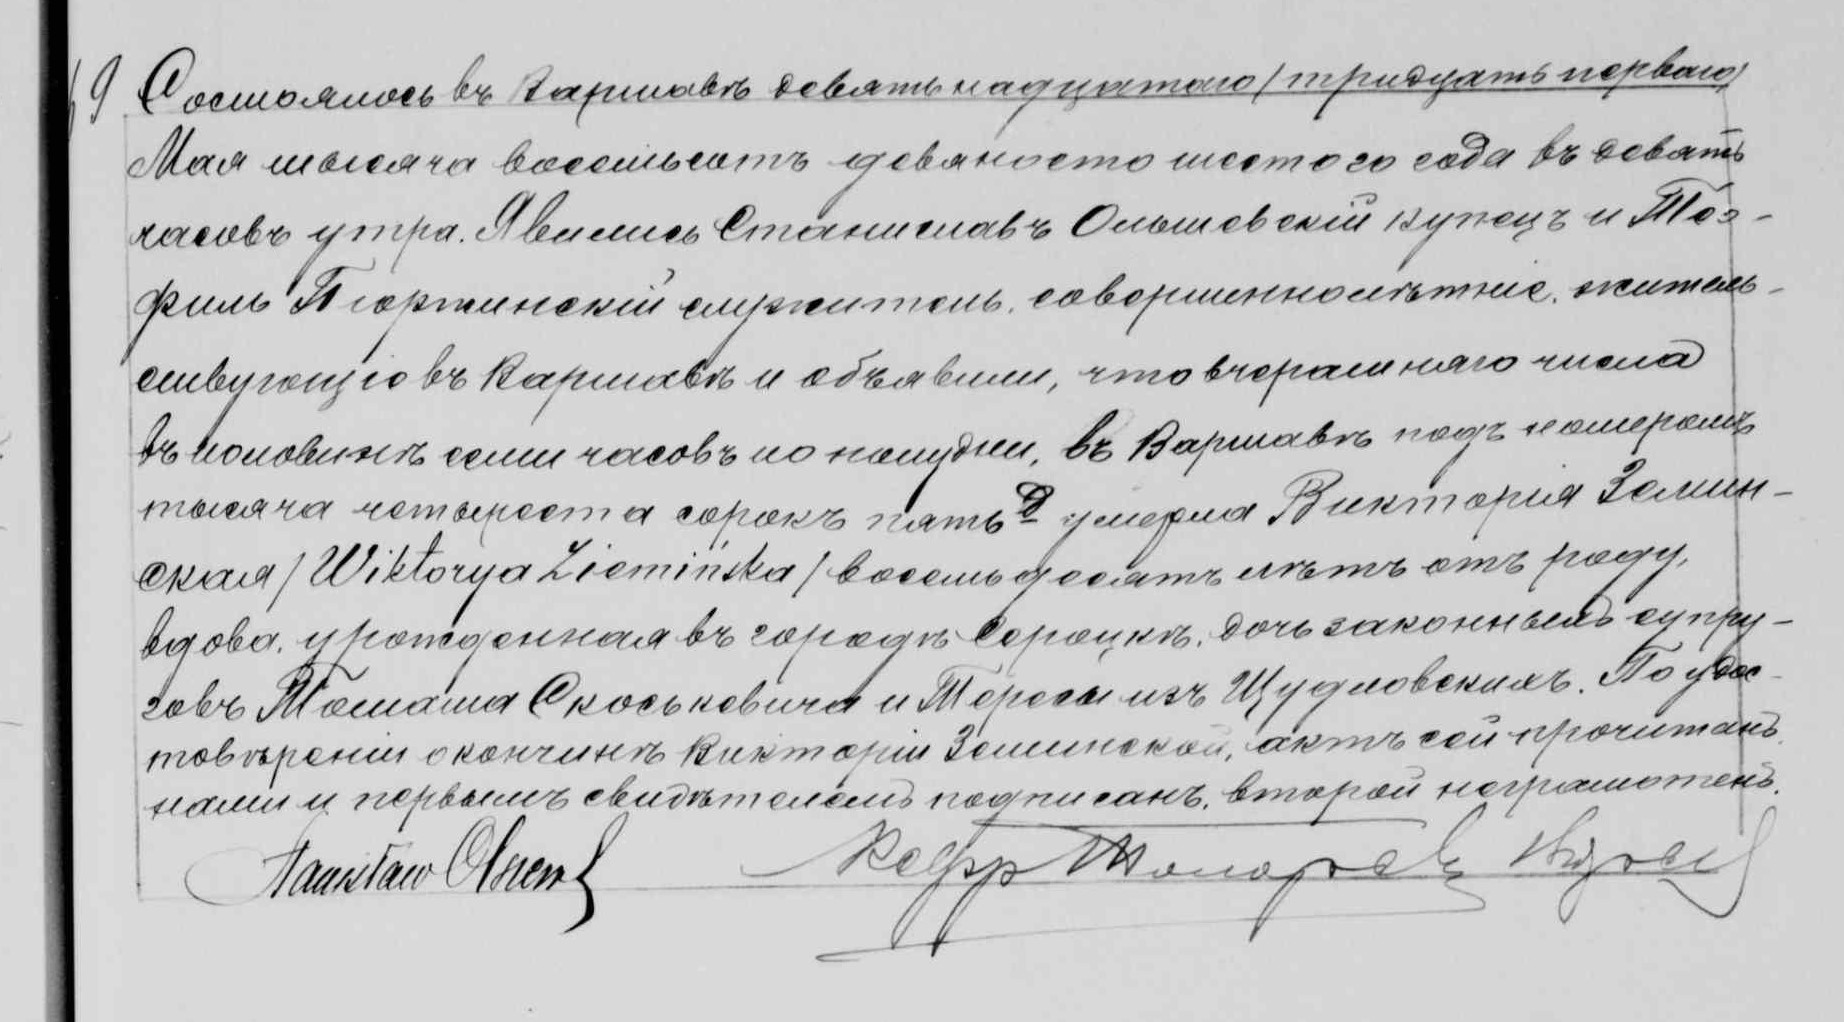 69 Состоялось въ Варшавѣ девятьнадцатаго /тридцать перваго/
Мая тысяча восемьсотъ девяносто шестого года въ девять
часовъ утра. Явились Станиславъ Ольшевскій купецъ и Тео-
филь служитель, совершеннолѣтніе, житель-
ствующіе въ Варшавѣ и объявили, что вчерашняго числа
въ половинѣ семи часовъ по полудни, въ Варшавѣ подъ номеромъ
тысяча четыреста сорокъ пять умерла Викторія Земин-
ская /Wiktorya Ziemińska/ восемьдесятъ лѣтъ отъ роду,
вдова, урожденная въ городѣ Сероцкѣ, дочь законныхъ супру-
говъ Томаша Скоськевича и Тересы изъ Щудловскихъ. По удос-
товѣреніи о кончинѣ Викторіи Земинской, актъ сей прочитанъ,
нами и первымъ свидѣтелемъ подписанъ, второй неграмотенъ.
Stanisław